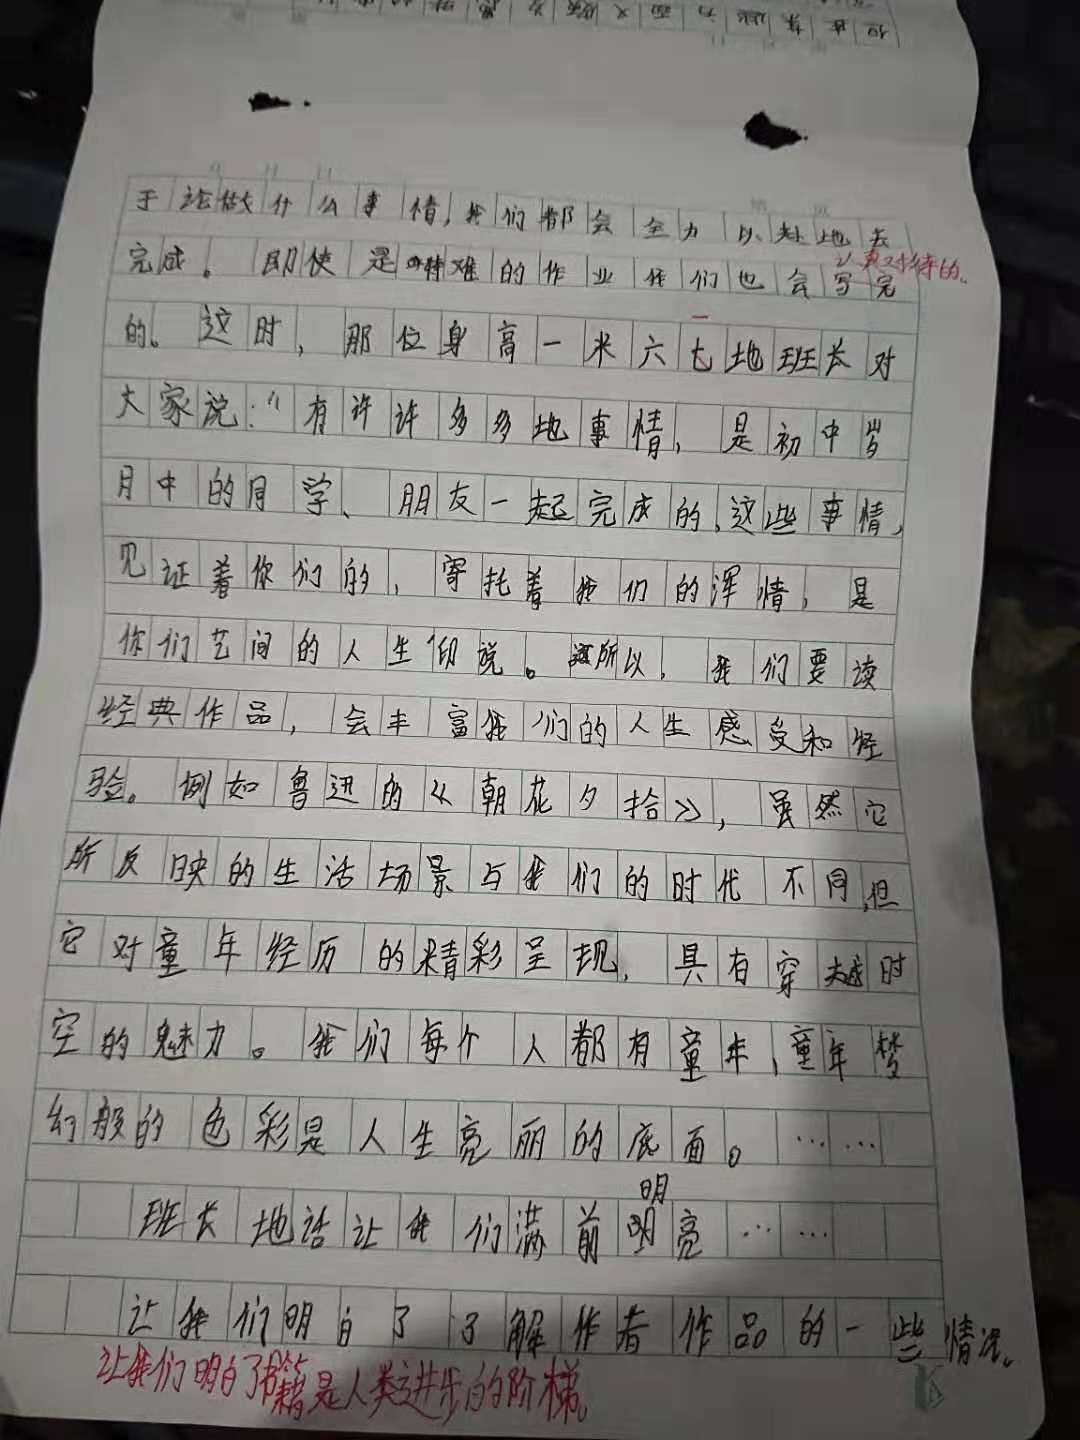 于论做什么事情，我们都会全力以赴地去
认真对待的。
完成。即使是特难的作业我们也会写完
的。这时，那位身高一米六七地班长对
大家说：“有许许多多地事情，是初中岁
月中的同学、朋友一起完成的，这些事情，
见证着你们的，寄托着我们的浑情，是
你们艺间的人生仰说。所以，我们要读
经典作品，会丰富我们的人生感受和经
验。例如鲁迅的《朝花夕拾》，虽然它
所反映的生活场景与我们的时代不同，但
它对童年经历的精彩呈现，具有穿越时
空的魅力。我们每个人都有童年，童年梦
幻般的色彩是人生亮丽的底面。……
明
班长地话让我们满前明亮……
让我们明白了了解作者作品的一些情况。
让我们明白了书籍是人类进步的阶梯。